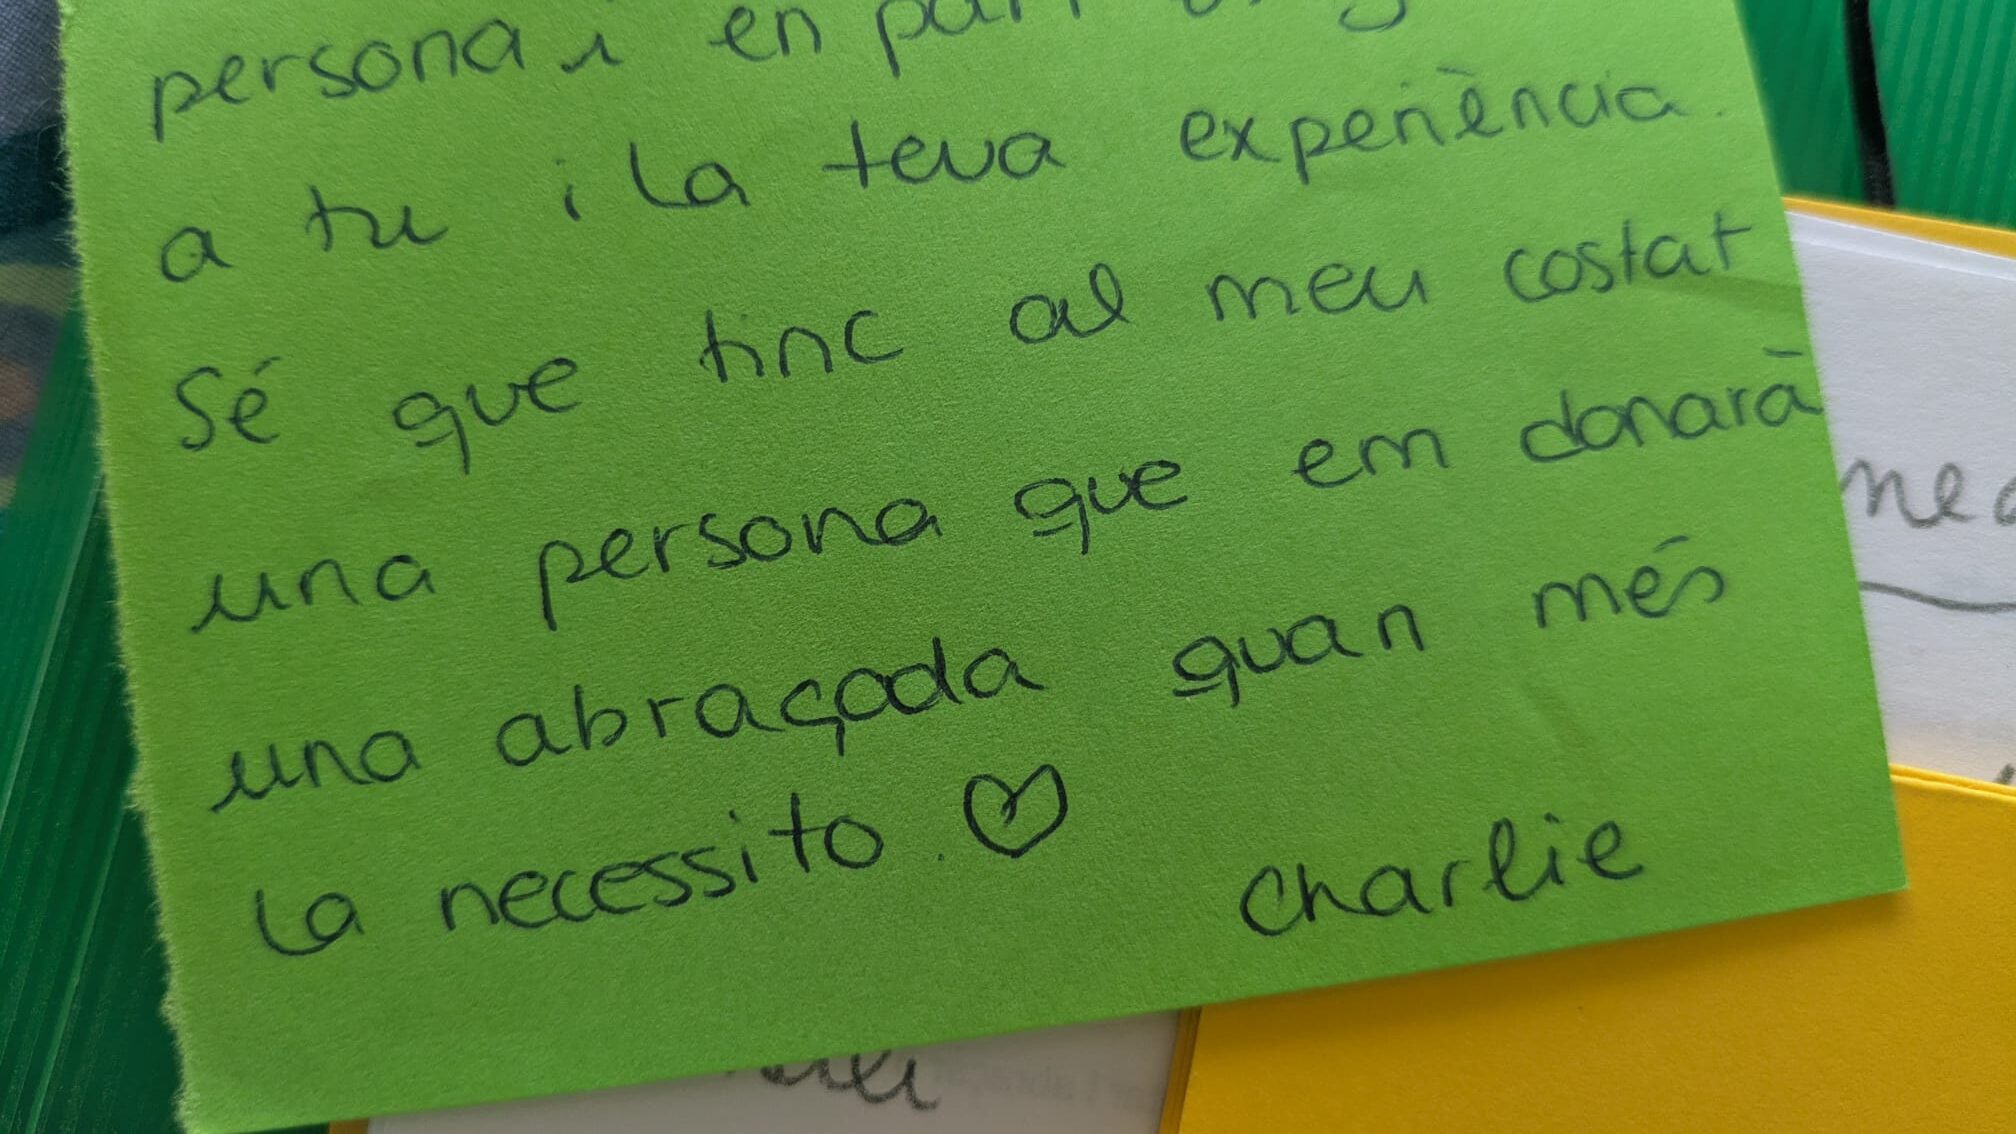 persona i en part
a tu i la teva experiència.
Sé que tinc al meu costat
una persona que em donarà
una abraçada quan més
la necessito. ♡
Charlie